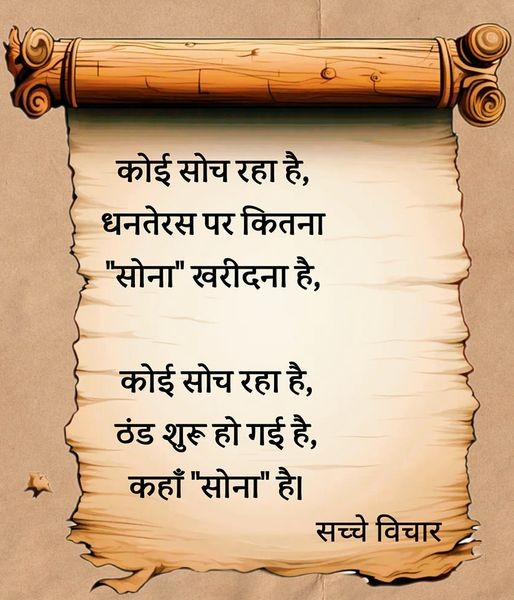 कोई सोच रहा है,
धनतेरस पर कितना
"सोना" खरीदना है,
कोई सोच रहा है,
ठंड शुरू हो गई है,
कहाँ "सोना" है।
सच्चे विचार